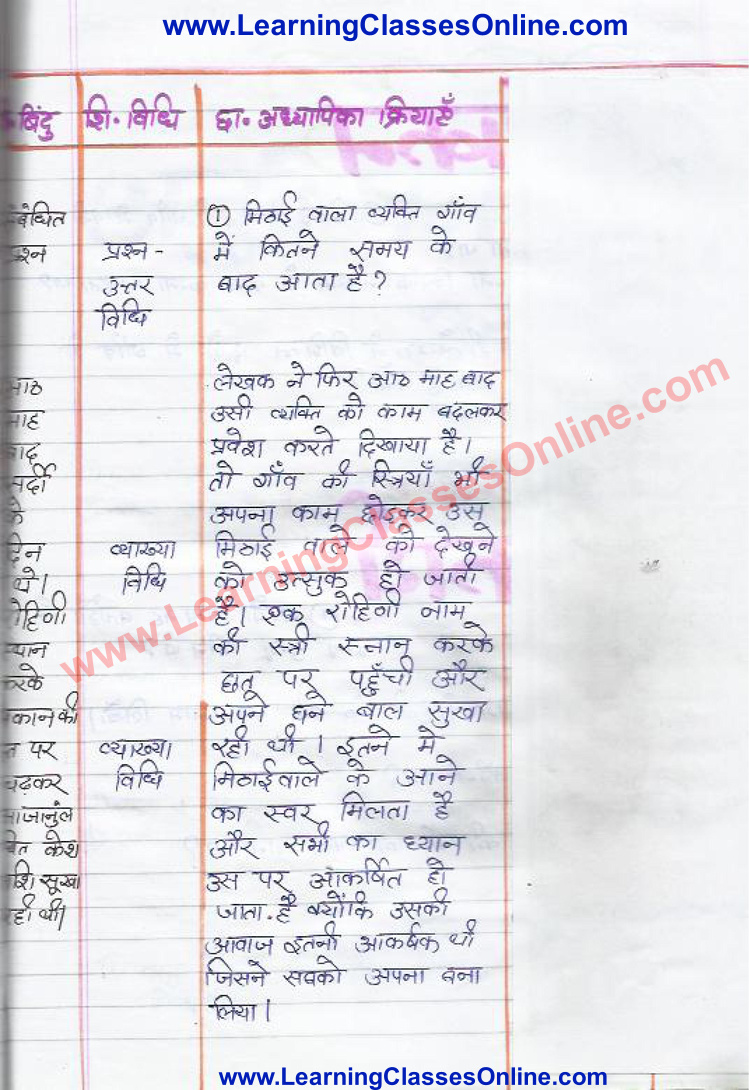 www.LearningClassesOnline.com
बिंदु शि. विधि छा. अध्यापिका क्रियाएँ
① मिठाई वाला व्यक्ति गाँव
प्रश्न - में कितने समय के
उत्तर बाद आता है?
विधि
माह
लेखक ने फिर आठ माह बाद
उसी व्यक्ति को काम बदलकर
प्रवेश करते दिखाया है।
तो गाँव की स्त्रियाँ भी
के अपना काम छोड़कर उस
व्याख्या मिठाई वाले को देखने
थे। विधि को उत्सुक हो जाती
है। एक रोहिणी नाम
की स्त्री स्नान करके
छत पर पहुँची और
अपने घने बाल सुखा
पर व्याख्या रही थी। इतने मे
चढ़कर विधि मिठाईवाले के आने
का स्वर मिलता है
केश और सभी का ध्यान
सुखा उस पर आकर्षित हो
थी। जाता है क्योंकि उसकी
आवाज इतनी आकर्षक थी
जिसने सबको अपना बना
लिया।
www.LearningClassesOnline.com
www.LearningClassesOnline.com